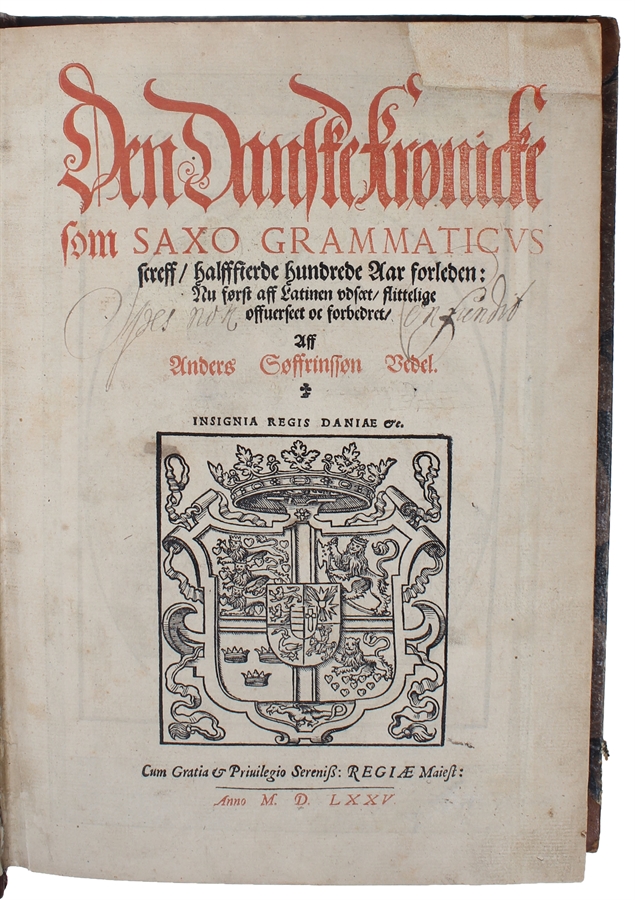 Den Danske Krønicke
som SAXO GRAMMATICVS
screff / halfffierde hundrede Aar forleden:
Nu først aff Latinen vdsæt / flittelige
offuerseet oc forbedret /
Spes non confundit
Aff
Anders Søffrinssøn Vedel.
INSIGNIA REGIS DANIAE &c.
Cum Gratia & Priuilegio Sereniß: REGIÆ Maiest:
Anno M. D. LXXV